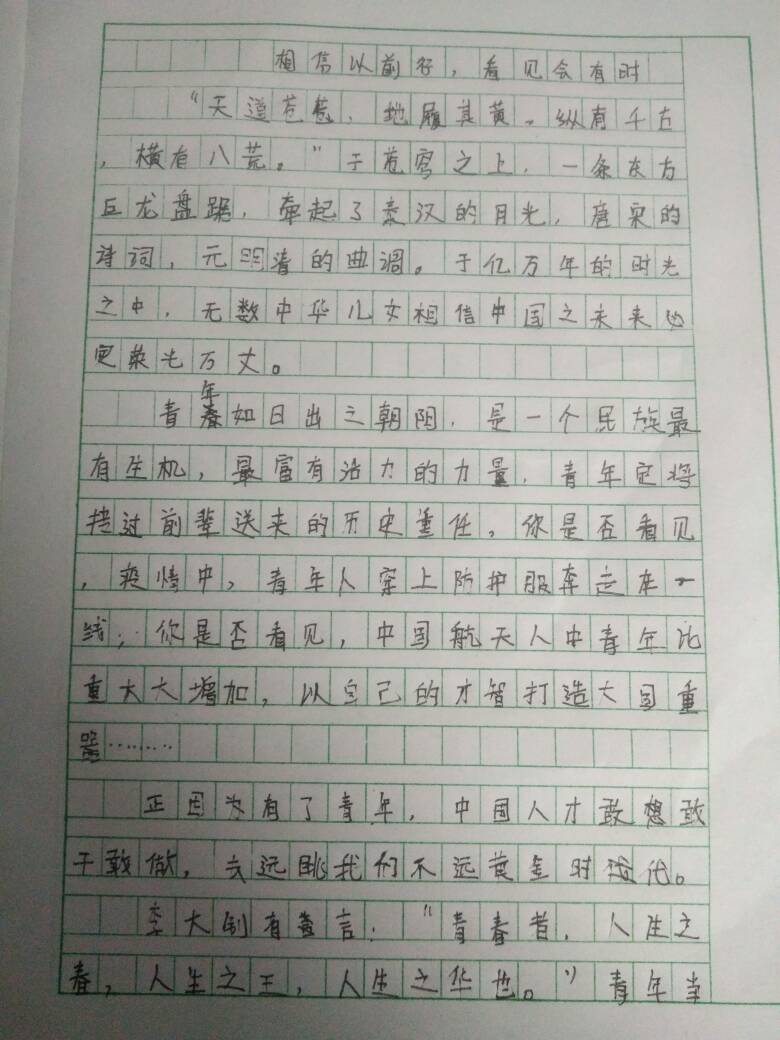 相信以前行，看见会有时
“天道苍苍，地履其黄。纵有千古
，横有八荒。”于苍穹之上，一条东方
巨龙盘踞，牵起了秦汉的月光，唐宋的
诗词，元明清的曲调。于亿万年的时光
之中，无数中华儿女相信中国之未来必
定荣光万丈。
青年如日出之朝阳，是一个民族最
有生机，最富有活力的力量，青年定将
接过前辈送来的历史重任，你是否看见
，疫情中，青年人穿上防护服奔走在一
线；你是否看见，中国航天人中青年比
重大大增加，以自己的才智打造大国重
器………
正因为有了青年，中国人才敢想敢
干敢做，去远眺我们不远黄金时代。
李大钊有言：“青春者，人生之
春，人生之王，人生之华也。”青年当